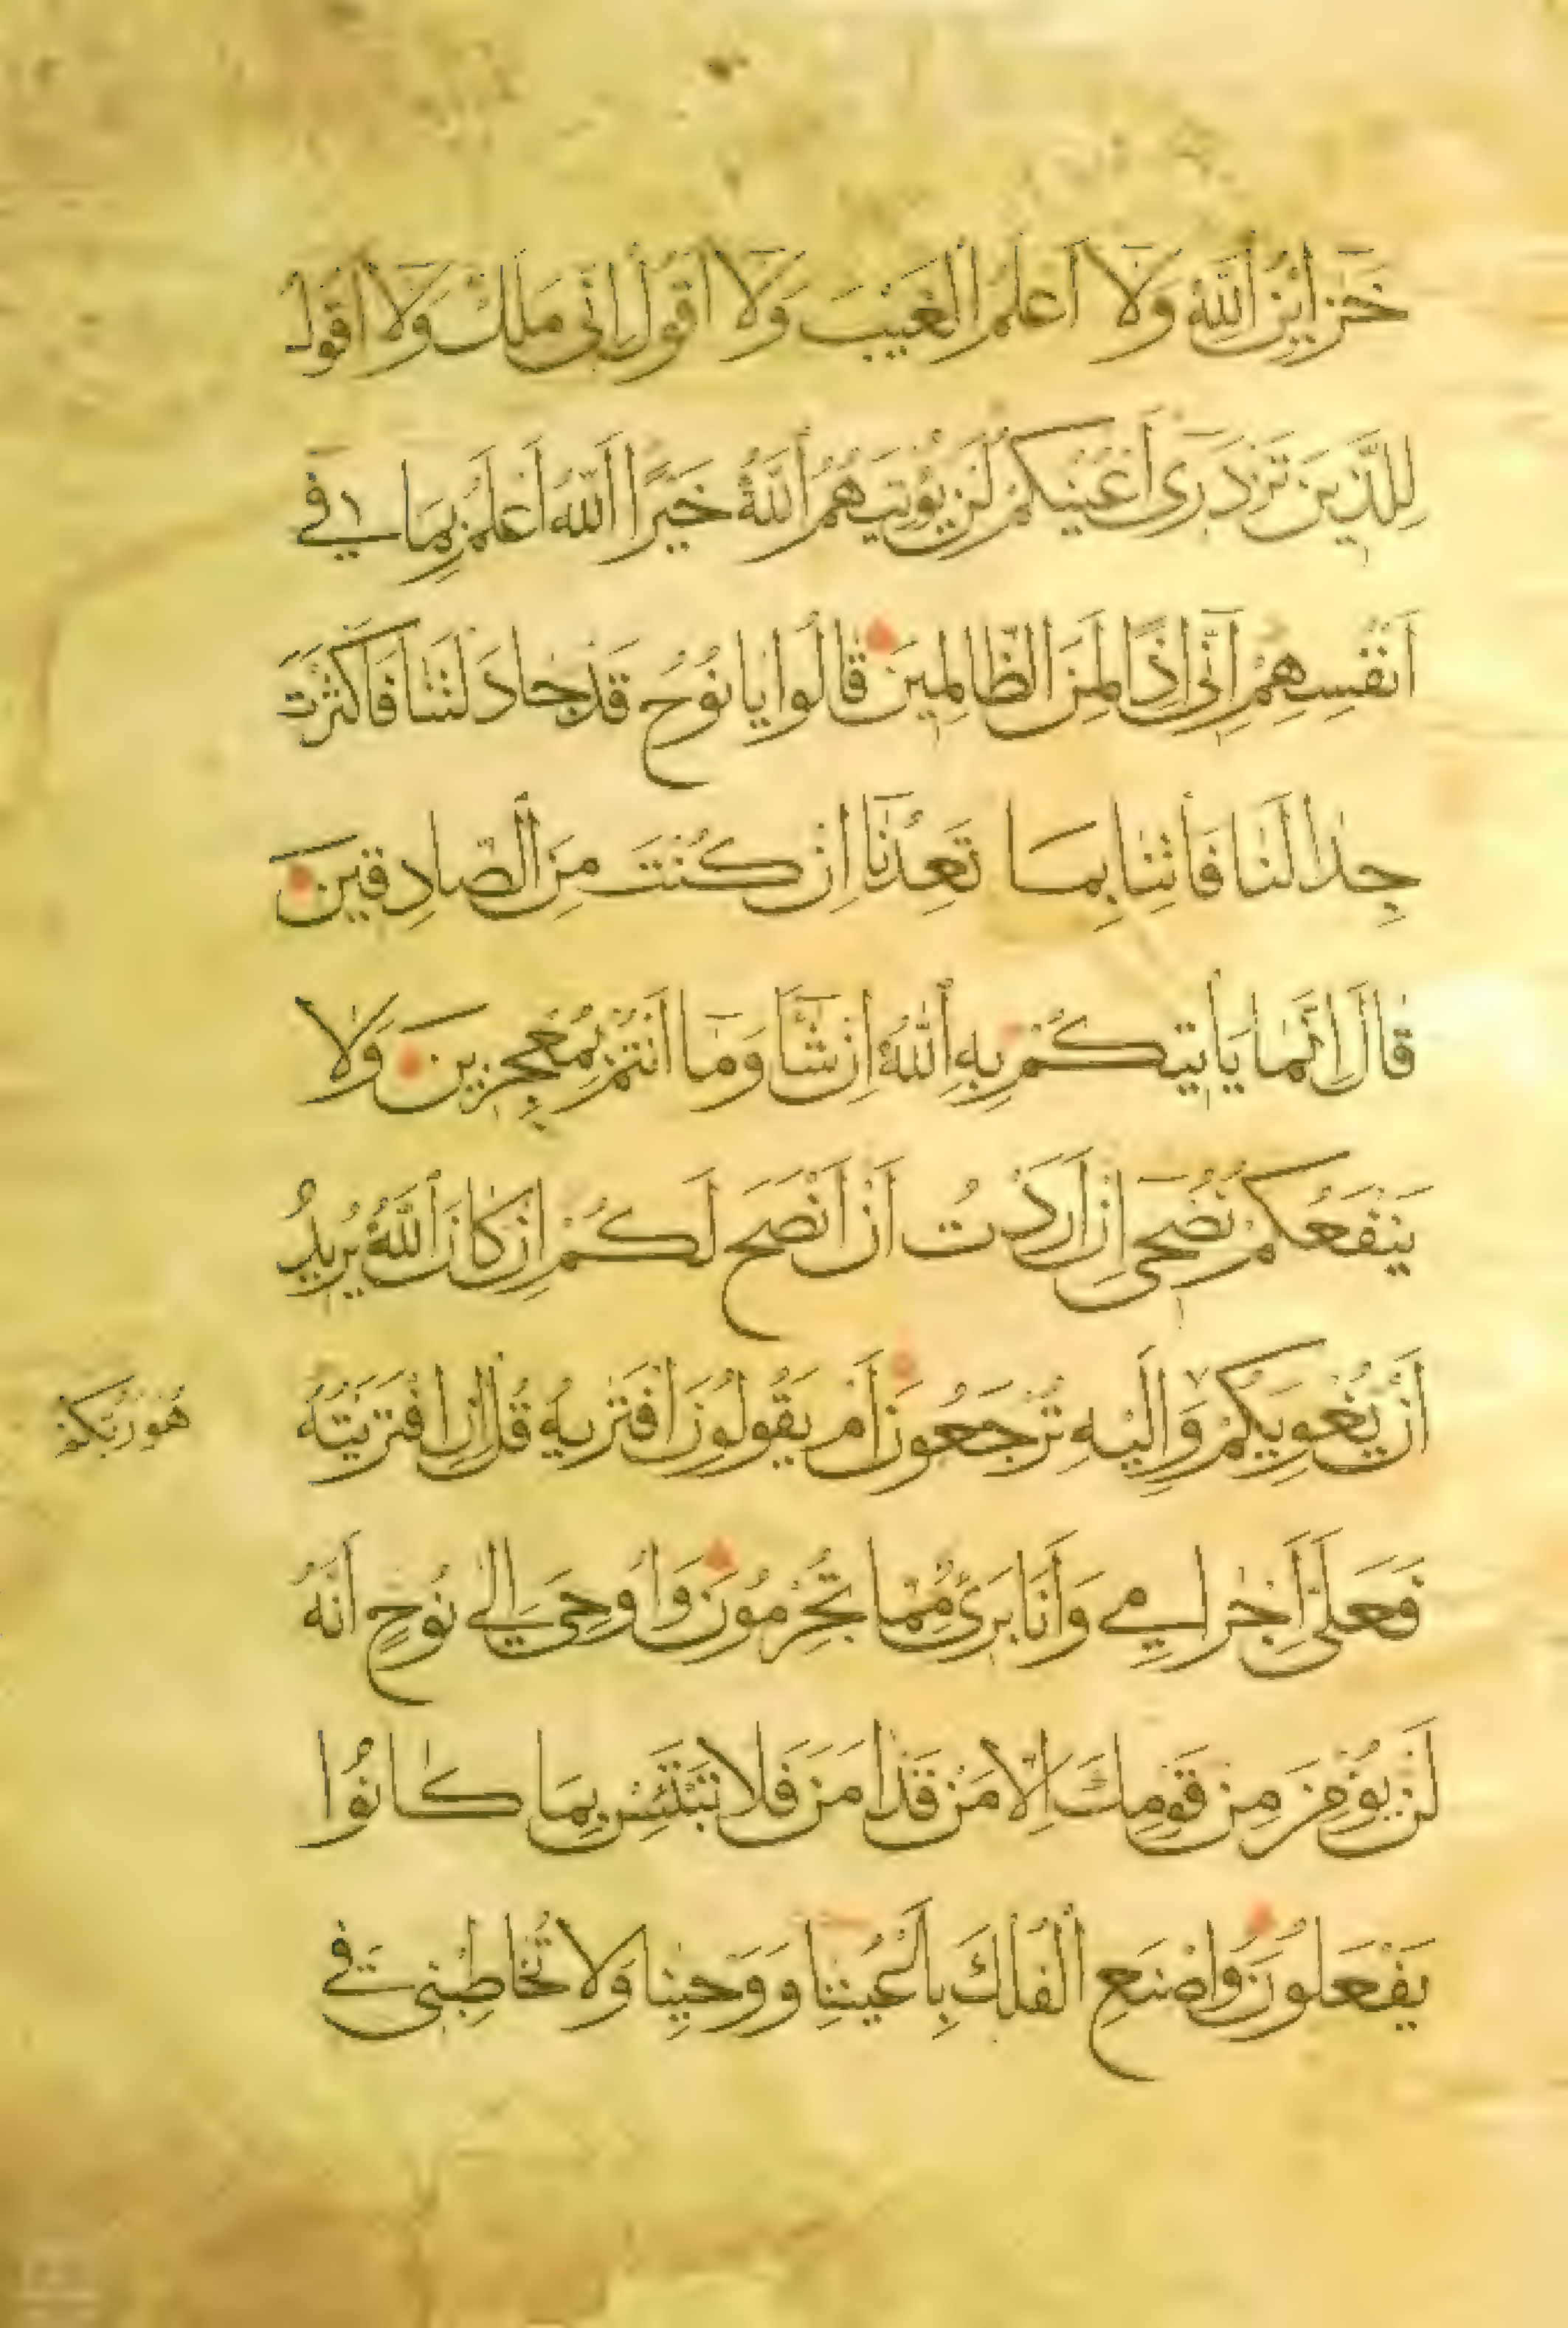 خَزَايِنُ اللَّهِ وَلَا أَعْلَمُ الْغَيْبَ وَلَا أَقُولُ إِنِّى مَلَكٌ وَلَا أَقُولُ
لِلَّذِينَ تَزْدَرِى أَعْيُنُكُمْ لَنْ يُؤْتِيَهُمُ اللَّهُ خَيْرًا اللَّهُ أَعْلَمُ بِمَا فِى
أَنْفُسِهِمْ إِنِّى إِذًا لَمِنَ الظَّالِمِينَ قَالُوا يَا نُوحُ قَدْ جَادَلْتَنَا فَأَكْثَرْتَ
جِدَالَنَا فَأْتِنَا بِمَا تَعِدُنَا إِنْ كُنْتَ مِنَ الصَّادِقِينَ
قَالَ إِنَّمَا يَأْتِيكُمْ بِهِ اللَّهُ إِنْ شَآءَ وَمَا أَنْتُمْ بِمُعْجِزِينَ وَلَا
يَنْفَعُكُمْ نُصْحِى إِنْ أَرَدْتُ أَنْ أَنْصَحَ لَكُمْ إِنْ كَانَ اللَّهُ يُرِيدُ
أَنْ يُغْوِيَكُمْ وَإِلَيْهِ تُرْجَعُونَ أَمْ يَقُولُونَ افْتَرَيهُ قُلْ إِنِ افْتَرَيْتُهُ
هُوَ رَبُّكُمْ
فَعَلَىَّ إِجْرَامِى وَأَنَا بَرِىءٌ مِمَّا تُجْرِمُونَ وَأُوحِىَ إِلَى نُوحٍ أَنَّهُ
لَنْ يُؤْمِنَ مِنْ قَوْمِكَ إِلَّا مَنْ قَدْ آمَنَ فَلَا تَبْتَئِسْ بِمَا كَانُوا
يَفْعَلُونَ وَاصْنَعِ الْفُلْكَ بِأَعْيُنِنَا وَوَحْيِنَا وَلَا تُخَاطِبْنِى فِى